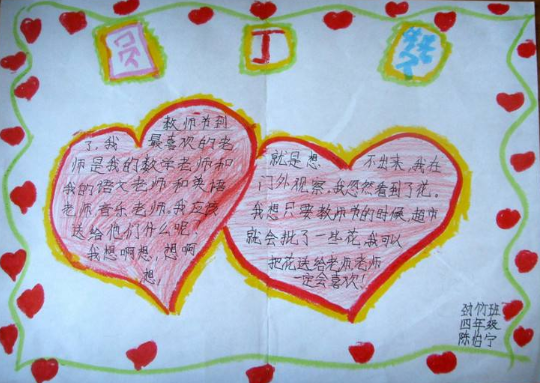 园丁赞
教师节到
了,我最喜欢的老
师是我的数学老师和
我的语文老师和英语
老师音乐老师。我应该
送给他们什么呢?
我想啊想,想啊
想,
就是想不出来,我在
门外视察,我忽然看到了花。
我想只要教师节的时候,超市
就会批了一些花,我可以
把花送给老师,老师
一定会喜欢!
劲竹班
四年级
陈怡宁